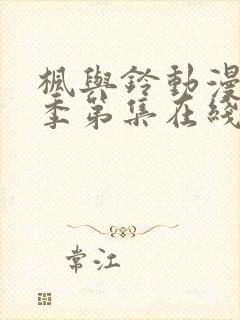 楓與鈴動漫
季第集在綫
常江